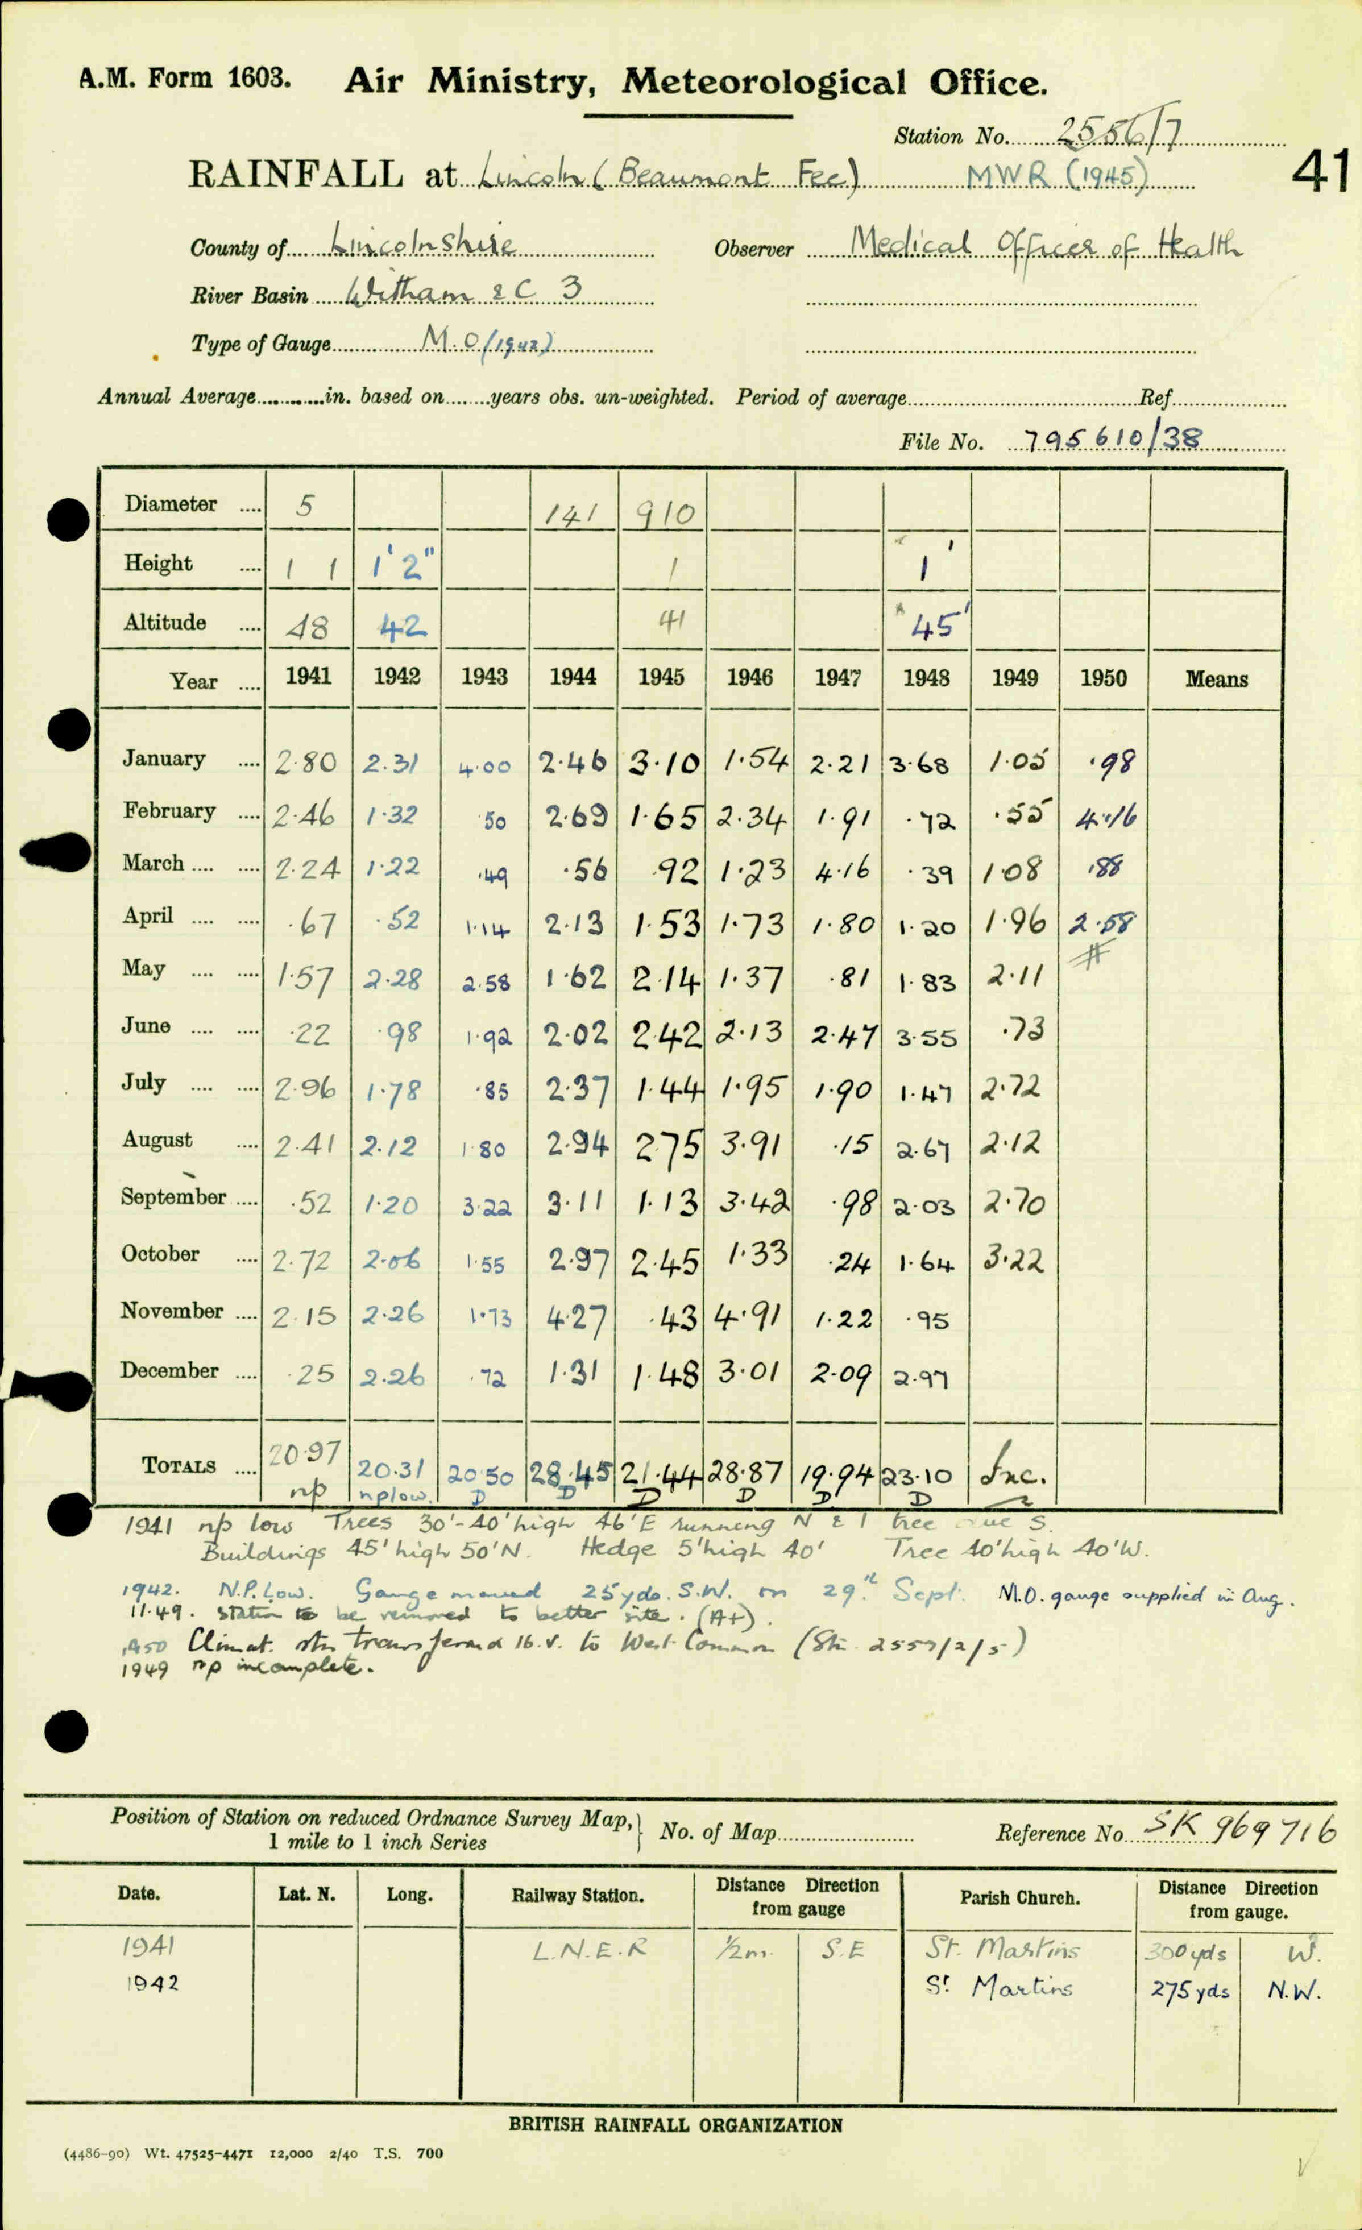 A.M. Form 1603. Air Ministry, Meteorological Office.
Station No. 2556/7
RAINFALL at Lincoln (Beaumont Fee) MWR (1945) 41
County of Lincolnshire Observer Medical Officer of Health
River Basin Witham &C 3
Type of Gauge M.O (1942)
Annual Average in. based on years obs. un-weighted. Period of average Ref
File No. 795610/38
Diameter 5 141 910
Height 1 1 1'2" 1 1'
Altitude 48 42 41 45'
Year 1941 1942 1943 1944 1945 1946 1947 1948 1949 1950 Means
January 2.80 2.31 4.00 2.46 3.10 1.54 2.21 3.68 1.05 .98
February 2.46 1.32 .50 2.69 1.65 2.34 1.91 .72 .55 4.16
March 2.24 1.22 .49 .56 .92 1.23 4.16 .39 1.08 .88
April .67 .52 1.14 2.13 1.53 1.73 1.80 1.20 1.96 2.58
May 1.57 2.28 2.58 1.62 2.14 1.37 .81 1.83 2.11
June .22 .98 1.92 2.02 2.42 2.13 2.47 3.55 .73
July 2.96 1.78 .85 2.37 1.44 1.95 1.90 1.47 2.72
August 2.41 2.12 1.80 2.94 2.75 3.91 .15 2.67 2.12
September .52 1.20 3.22 3.11 1.13 3.42 .98 2.03 2.70
October 2.72 2.06 1.55 2.97 2.45 1.33 .24 1.64 3.22
November 2.15 2.26 1.73 4.27 .43 4.91 1.22 .95
December .25 2.26 .72 1.31 1.48 3.01 2.09 2.97
TOTALS 20.97 20.31 20.50 28.45 21.44 28.87 19.94 23.10 Inc.
np nplow. D D D D D D
1941 np low Trees 30'-40' high 46'E running N & 1 tree S.
Buildings 45' high 50'N. Hedge 5' high 40' Tree 40' high 40'W.
1942. N.P. Low. Gauge moved 25yds. S.W. on 29th Sept. M.O. gauge supplied in Aug.
11.49. Station to be removed to better site. (A+).
Climat. stn transferred 16.V. to West Common (Stn 2557/2/5)
1949 np incomplete.
Position of Station on reduced Ordnance Survey Map, 1 mile to 1 inch Series No. of Map Reference No SK 969716
Date. Lat. N. Long. Railway Station. Distance Direction from gauge Parish Church. Distance Direction from gauge.
1941 L.N.E.R ½m. S.E St. Martins 300yds W.
1942 St Martins 275yds N.W.
BRITISH RAINFALL ORGANIZATION
(4486-90) Wt. 47525-4471 12,000 2/40 T.S. 700